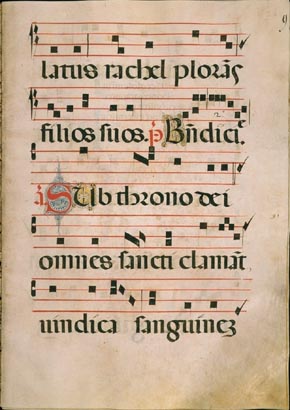 latus rachel plorãs
filios suos. p Bñdicit.
a Sub throno dei
omnes sancti clamãt
uindica sanguinez